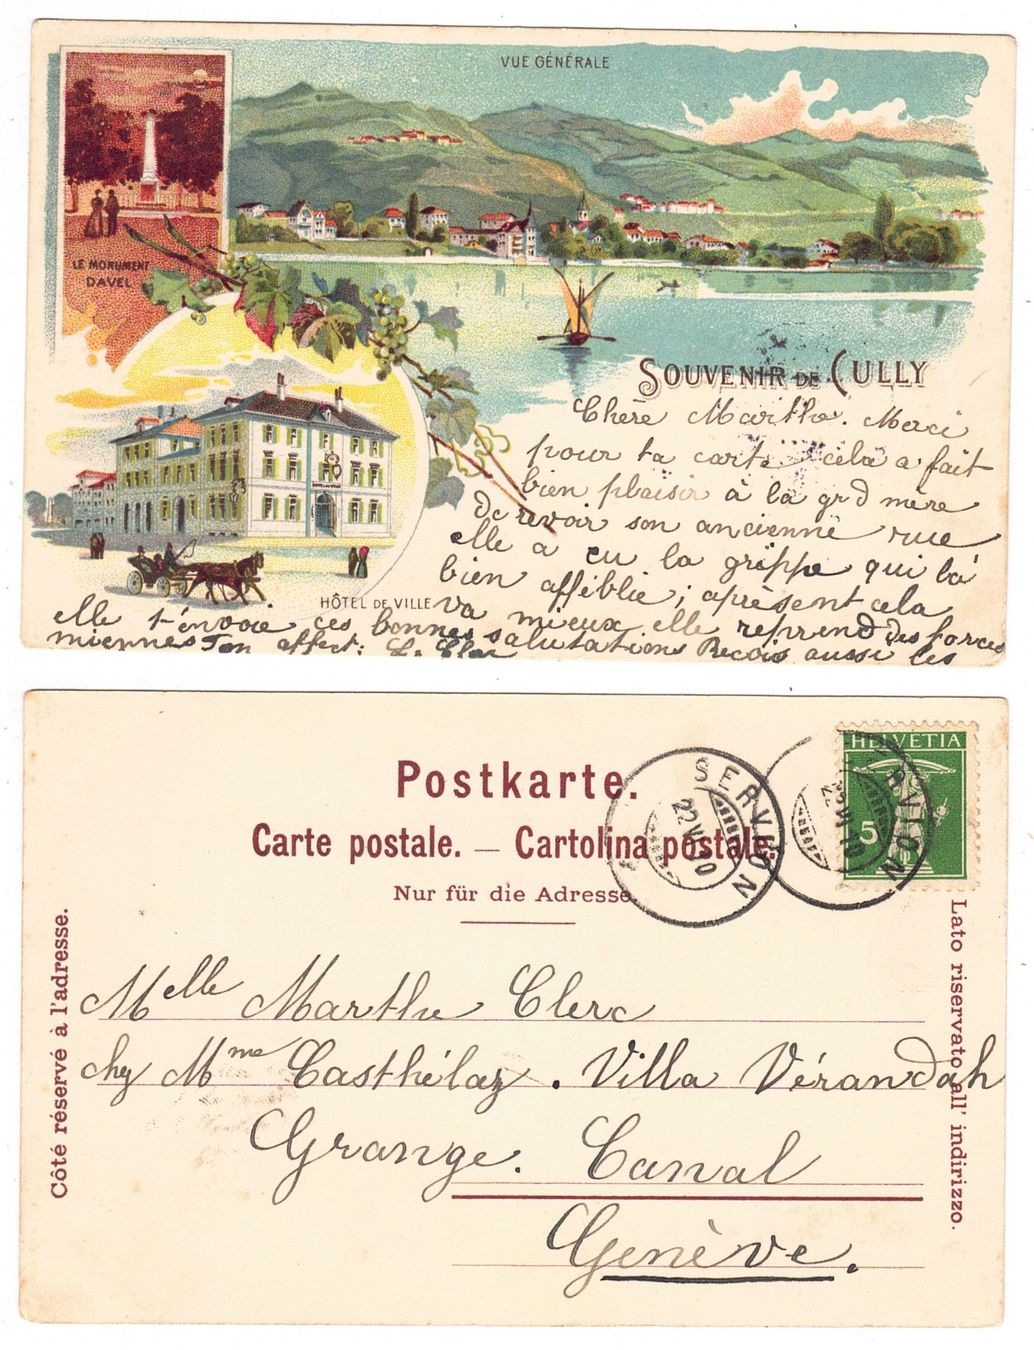 VUE GÉNÉRALE
LE MONUMENT
DAVEL
SOUVENIR DE CULLY
HÔTEL DE VILLE
Chère Marthe. Merci
pour ta carte cela a fait
bien plaisir à la grd mère
De revoir son ancienne rue
elle a eu la grippe qui la
bien affeiblie; aprésent cela
va mieux elle reprend des forces
elle t'envoie ces bonnes salutations Reçois aussi les
miennes Ton affect: L. Clerc
Postkarte.
Carte postale. — Cartolina postale.
Nur für die Adresse.
Côté réservé à l'adresse.
Lato riservato all' indirizzo.
HELVETIA
5
SERVION
22 VI 10
SERVION
22 VI 10
Melle Marthe Clerc
chez Mme Casthélaz. Villa Vérandah
Grange. Canal
Genève.